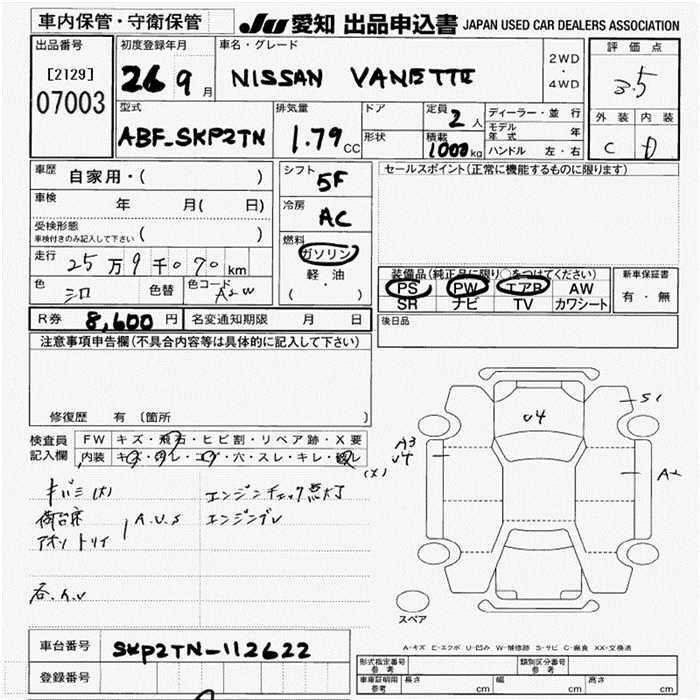 車内保管・守衛保管
JU 愛知 出品申込書 JAPAN USED CAR DEALERS ASSOCIATION
出品番号
[2129]
07003
初度登録年月
26 9 月
車名・グレード
NISSAN VANETTE
2WD
・
4WD
評価点
3.5
外装 内装
C D
型式
ABF-SKP2TN
排気量
1.79 CC
ドア
形状
定員 2 人
積載 1000 kg
ディーラー・並行
モデル年式 年
ハンドル 左・右
車歴
自家用・( )
車検
年 月( 日)
受検形態
車検付きのみ記入して下さい ( )
走行
25万9千070 km
色
シロ
色替
色コード
A2W
シフト
5F
冷房
AC
燃料
ガソリン
軽・油
( ・ )
セールスポイント(正常に機能するものに限ります)
装備品(純正品に限り○をつけてください)
PS PW エアB AW
SR ナビ TV カワシート
新車保証書
有・無
R券 8,600 円
名変通知期限 月 日
後日品
注意事項申告欄(不具合内容等は具体的に記入して下さい)
修復歴 有〔箇所 〕
検査員
記入欄
FW キズ・飛石・ヒビ割・リペア跡・X要
内装 キズ・汚レ・コゲ・穴・スレ・キレ・破レ
キバミ(大)
エンジンチェック点灯
荷台床
A.U.S
エンジン
V4
S1
A3
V4
(X)
スペア
A-キズ E-エクボ U-凹み W-補修跡 S-サビ C-腐食 XX-交換済
車台番号
SKP2TN-112622
登録番号
形式指定番号
参考
類別区分番号
参考
車庫証明用
参考
長さ cm 幅 cm 高さ cm